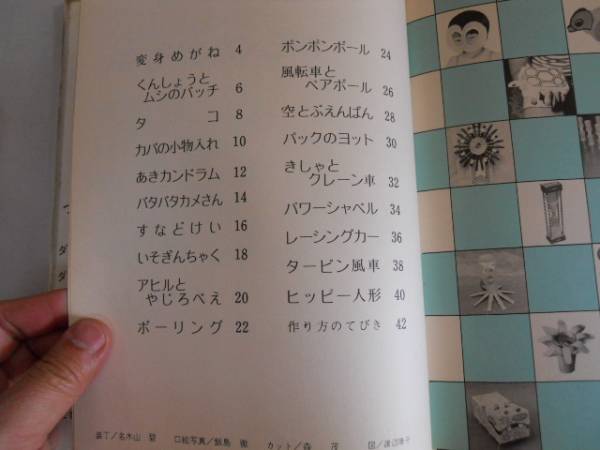 変身めがね 4
くんしょうと
ムシのバッチ 6
タコ 8
カバの小物入れ 10
あきカンドラム 12
パタパタカメさん 14
すなどけい 16
いそぎんちゃく 18
アヒルと
やじろべえ 20
ボーリング 22
ポンポンボール 24
風転車と
ペアボール 26
空とぶえんばん 28
パックのヨット 30
きしゃと
クレーン車 32
パワーシャベル 34
レーシングカー 36
タービン風車 38
ヒッピー人形 40
作り方のてびき 42
装丁/名木山 口絵写真/飯島 カット/森 茂 図/渡辺